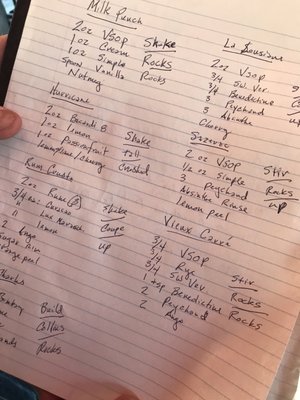 Milk Punch
2oz VSOP Shake
1oz Cream Rocks
1oz Simple Rocks
Spoon Vanilla
Nutmeg
Hurricane
2oz Bacardi 8
1oz Lemon Shake
1oz Passionfruit Tall
Lemon/Lime/Cherry Crushed
Rum Crusta
2oz Rum
3/4 oz Curacao Shake
" Lux Maraschino Coupe
" Lemon up
2 Ango
Sugar Rim
Orange peel
Build
Collins
Rocks
La Louisiane
2oz VSOP
3/4 Sw. Ver.
3/4 Benedictine
3 Peychaud
3 Absinthe
Cherry up
Sazerac
2 oz VSOP Stir
1/4 oz Simple Rocks
3 Peychaud up
Absinthe Rinse
lemon peel
Vieux Carre
3/4 VSOP
3/4 Rye
3/4 Sw Ver Stir
1 tsp Benedictine Rocks
2 Peychaud Rocks
2 Ango